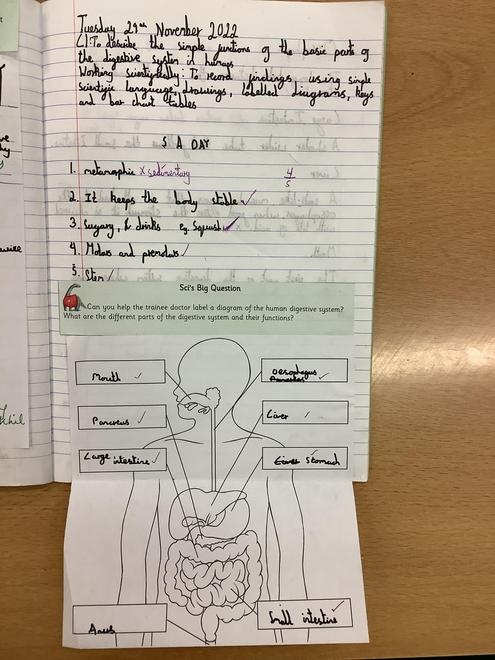 Tuesday 29th November 2022
LI: To describe the simple functions of the basic parts of
the digestive system in humans
Working scientifically: To record findings using simple
scientific language, drawings, labelled diagrams, keys
and bar chart tables
5 A DAY
1. metamorphic x sedimentary
4/5
2. It keeps the body stable
3. Sugary, & drinks eg. Squash
4. Molars and premolars
5. Stem
Sci's Big Question
Can you help the trainee doctor label a diagram of the human digestive system?
What are the different parts of the digestive system and their functions?
Mouth
Oesophagus
Pancreas
Pancreas
Liver
Large intestine
Liver Stomach
Anus
Small intestine